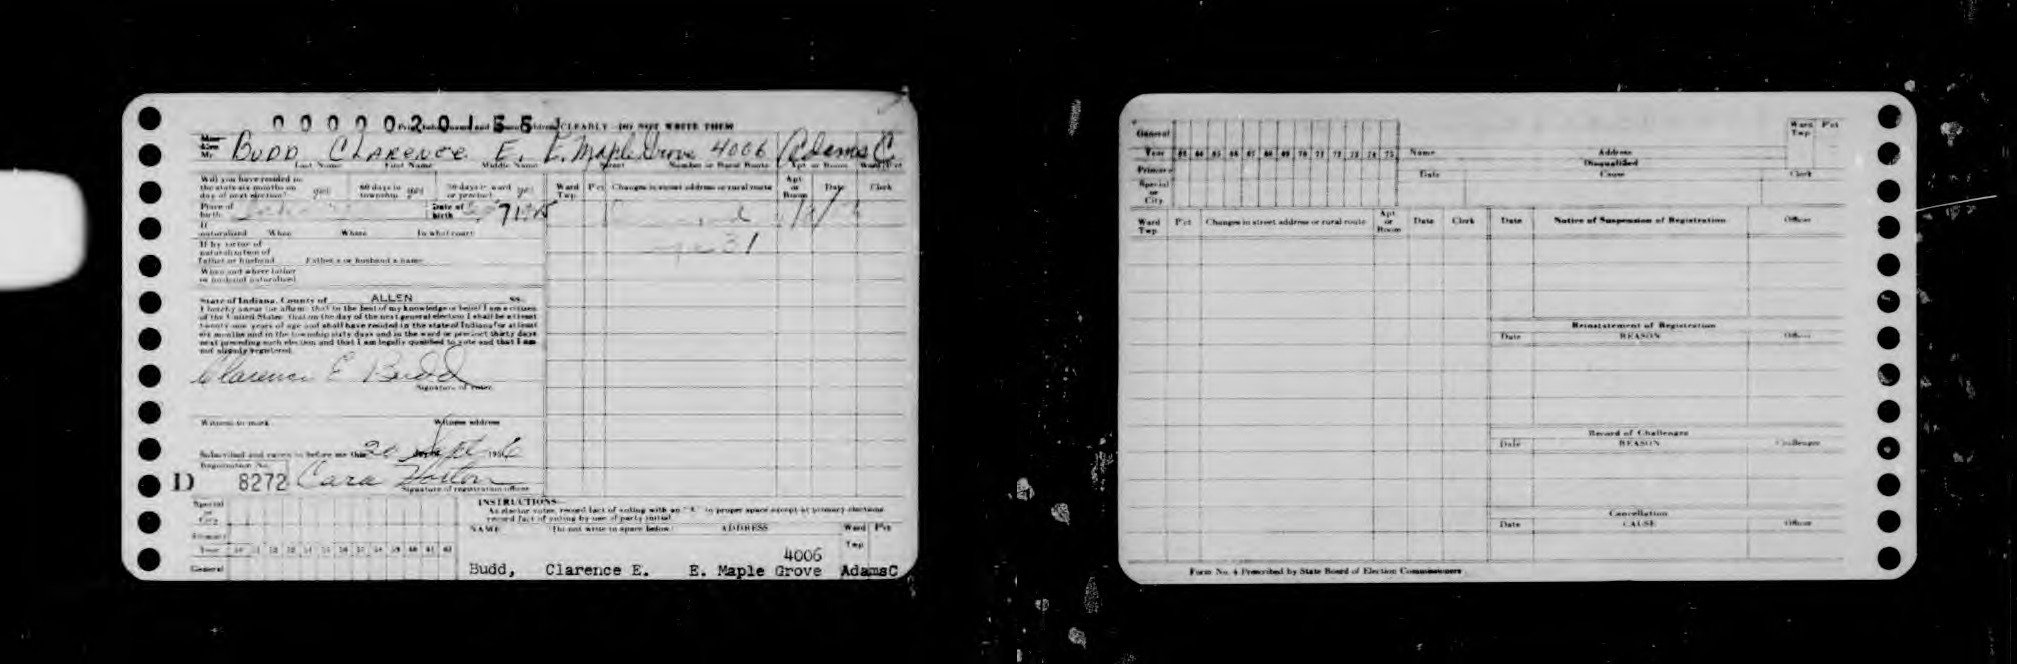 00000020155
CLEARLY DO NOT WRITE THEM
Miss
Mrs
Mr BUDD CLARENCE E. E. Maple Grove 4006 Adams C
Last Name First Name Middle Name Street Number or Rural Route Apt or Room Ward Pct
Will you have resided in
the state six months on
day of next election? yes 60 days in township yes 30 days in ward or precinct yes
Place of birth Date of birth
If naturalized When Where In what court
If by virtue of
naturalization of
Father or husband Father's or husband's name
When and where father
or husband naturalized
State of Indiana, County of ALLEN SS.
I hereby swear (or affirm) that to the best of my knowledge or belief I am a citizen
of the United States, that on the day of the next general election I shall be at least
twenty one years of age and shall have resided in the state of Indiana for at least
six months and in the township sixty days and in the ward or precinct thirty days
next preceding such election and that I am legally qualified to vote and that I am
not already registered.
Clarence E Budd
Signature of voter
Witness to mark Witness address
Subscribed and sworn to before me this 20 Sept 1956
Registration No.
D 8272 Cara
Signature of registration officer
Ward Twp Pct Changes in street address or rural route Apt or Room Date Clerk
31
Special or City
Primary
Year 50 51 52 53 54 55 56 57 58 59 60 61 62
General
INSTRUCTIONS
As elector votes, record fact of voting with an "X" in proper space except at primary elections
record fact of voting by use of party initial.
NAME (Do not write in space below) ADDRESS Ward Twp Pct
4006
Budd, Clarence E. E. Maple Grove AdamsC
General
Year 63 64 65 66 67 68 69 70 71 72 73 74 75
Primary
Special or City
Name Address Ward Twp Pct
Disqualified
Date Cause Clerk
Ward Twp Pct Changes in street address or rural route Apt or Room Date Clerk
Date Notice of Suspension of Registration Officer
Reinstatement of Registration
Date REASON Officer
Record of Challenges
Date REASON Challenger
Cancellation
Date CAUSE Officer
Form No. 4 Prescribed by State Board of Election Commissioners